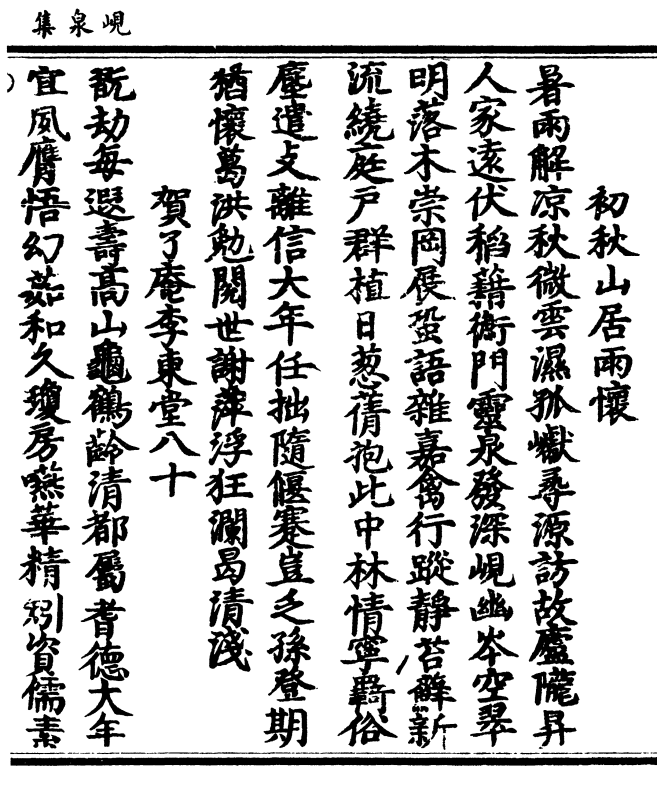 峴泉集
初秋山居雨懷
暑雨解凉秋微雲濕孤巘尋源訪故廬隴舁
人家遠伏稻藉衡門靈泉發深峴幽岑空翠
明落木崇岡展蛩語雜嘉禽行蹤靜苔蘚新
流繞庭戶群植日葱蒨抱此中林情寧羈俗
塵遣攴離信大年任拙隨偃蹇豈乏孫登期
猶懷葛洪勉閱世謝萍浮狂瀾曷清淺
賀了庵李東堂八十
翫劫每遐壽高山龜鶴齡清都屬耆德大年
宜夙膺悟幻茹和久瓊房嚥華精矧資儒素